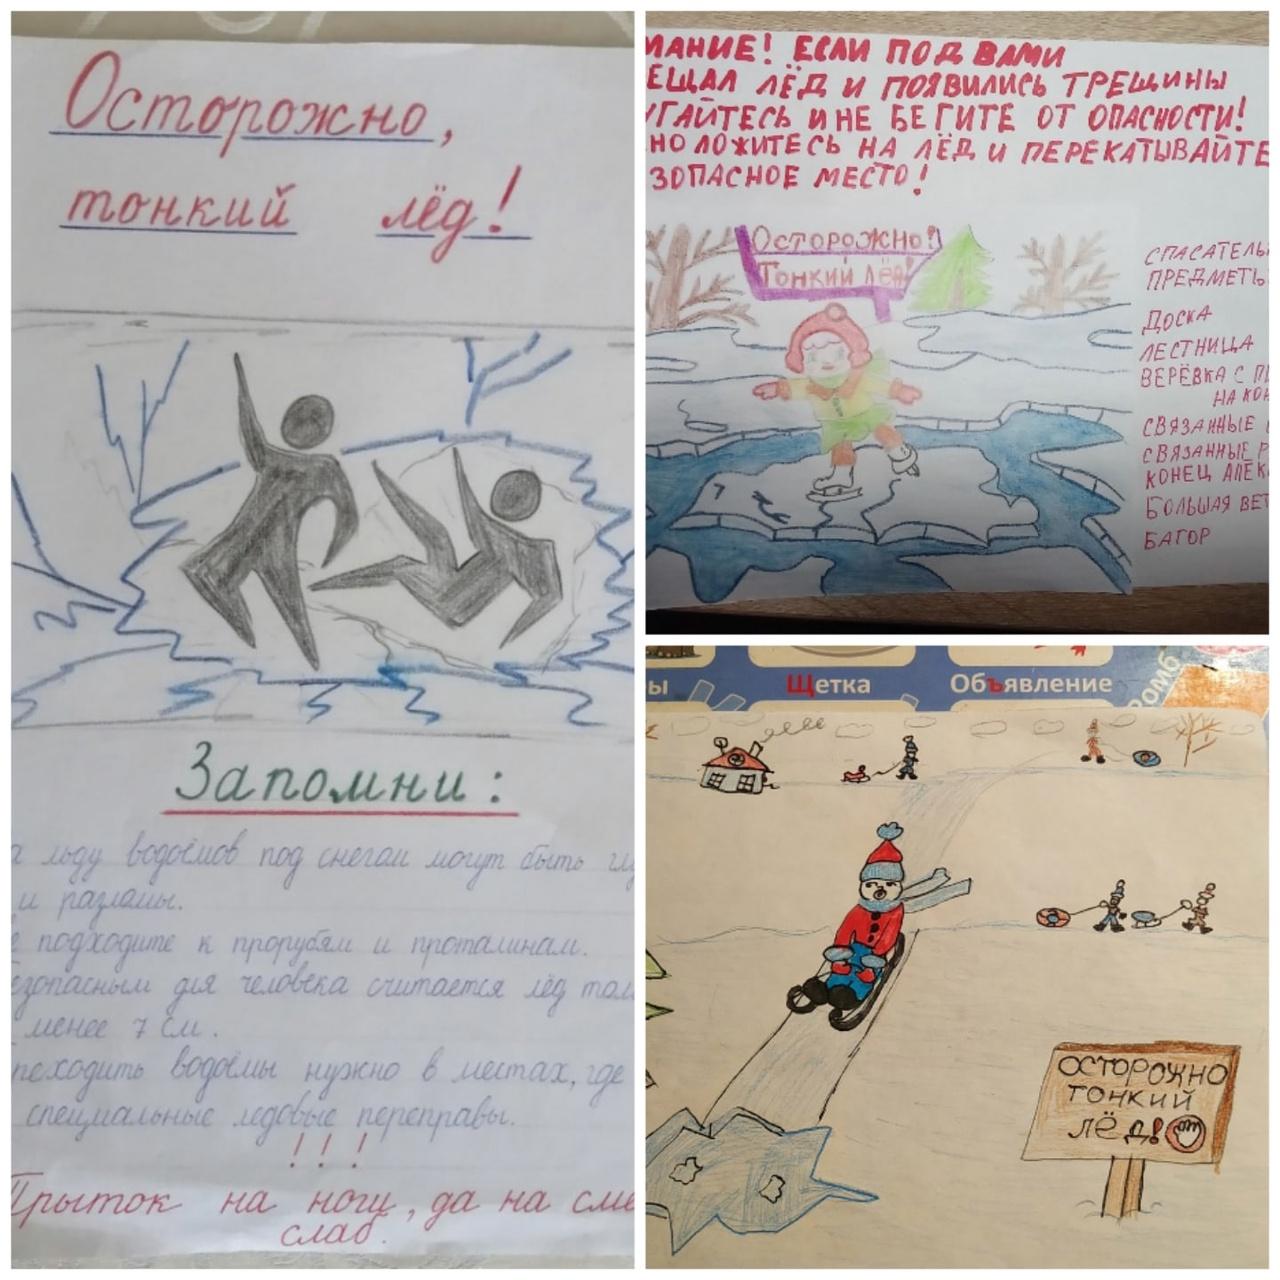 Осторожно,
тонкий лёд!
Запомни:
льду водоёмов под снегом могут быть
и разломы.
подходите к прорубям и проталинам.
для человека считается лёд
менее 7 см.
водоёмы нужно в местах, где
специальные ледовые переправы.
!!!
Прыток на ногу, да на
слаб.
МАНИЕ! ЕСЛИ ПОД ВАМИ
ЕЩАЛ ЛЁД И ПОЯВИЛИСЬ ТРЕЩИНЫ
УГАЙТЕСЬ И НЕ БЕГИТЕ ОТ ОПАСНОСТИ!
НО ЛОЖИТЕСЬ НА ЛЁД И ПЕРЕКАТЫВАЙТЕ
ЗОПАСНОЕ МЕСТО!
Осторожно!
Тонкий лёд!
СПАСАТЕЛЬ
ПРЕДМЕТЫ
ДОСКА
ЛЕСТНИЦА
ВЕРЁВКА С
НА КОН
СВЯЗАННЫЕ
СВЯЗАННЫЕ Р
КОНЕЦ
БОЛЬШАЯ ВЕТ
БАГОР
ы Щетка Объявление
Ромб
ОСТОРОЖНО
ТОНКИЙ
ЛЁД!